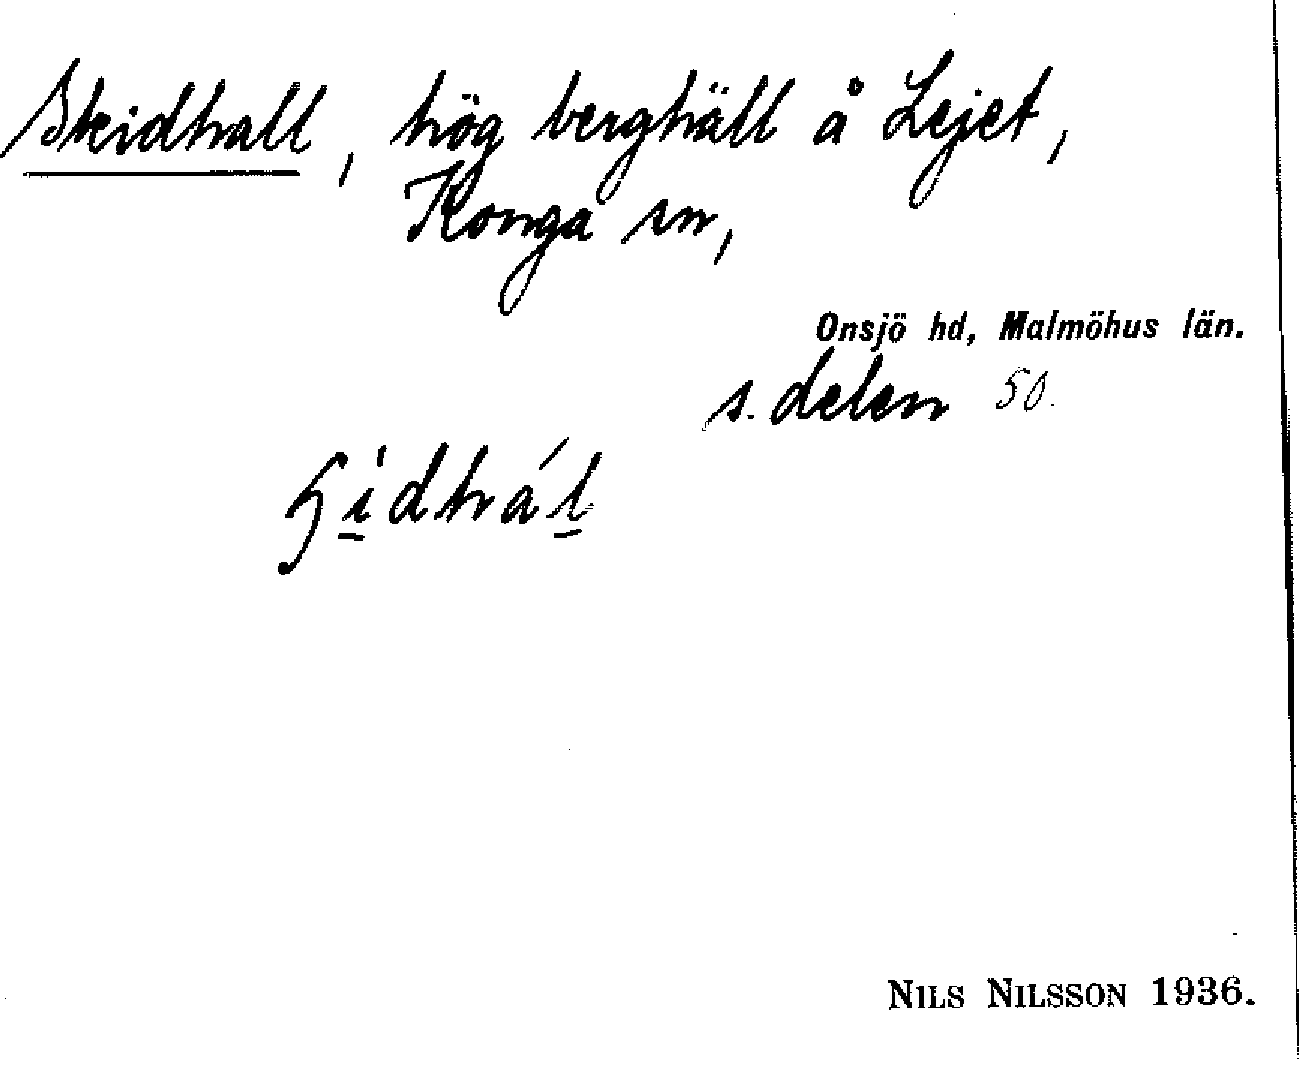 Skidhall, hög berghäll å Lejet,
Konga sn,
Onsjö hd, Malmöhus län.
s. delen 50.
ʃi̲dhál̲
NILS NILSSON 1936.